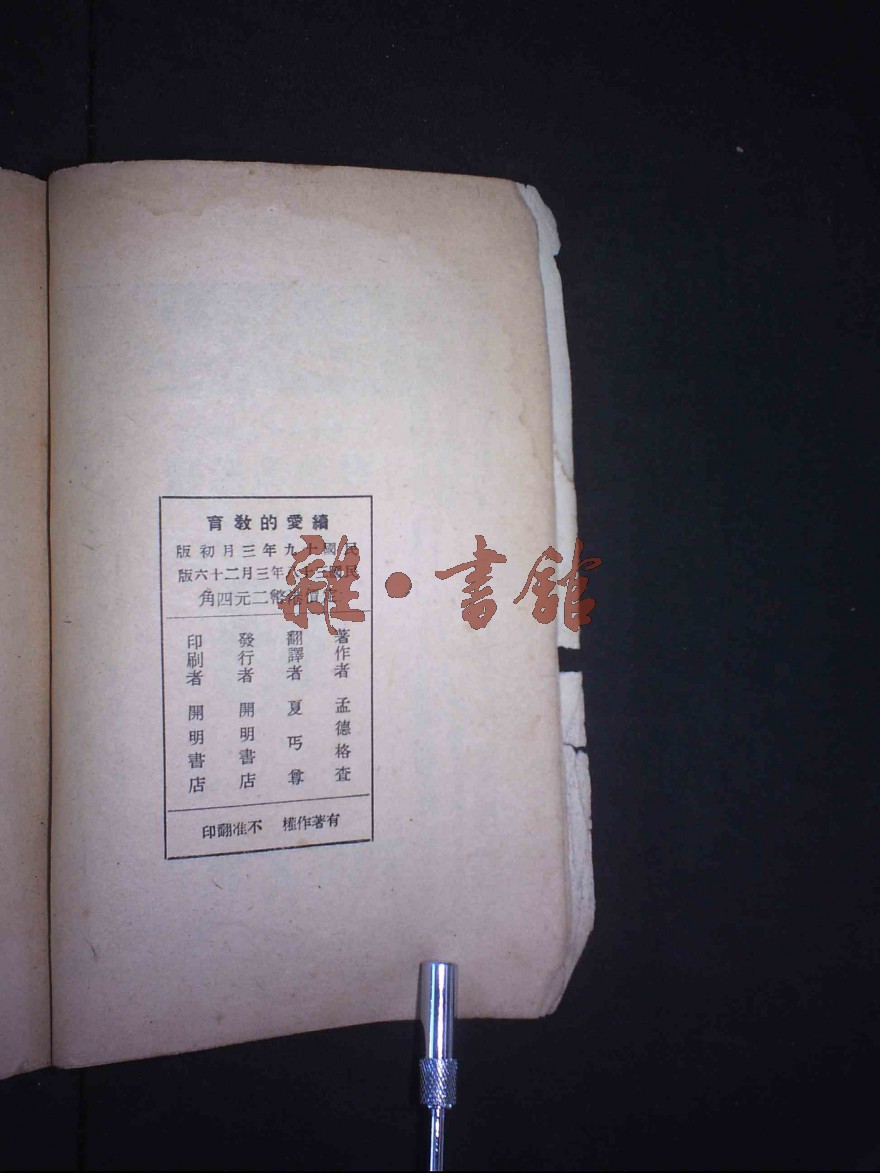 續愛的教育
民國十九年三月初版
民國三十八年三月二十六版
定價港幣二元四角
著作者 孟德格查
翻譯者 夏丏尊
發行者 開明書店
印刷者 開明書店
有著作權 不准翻印
雜·書館